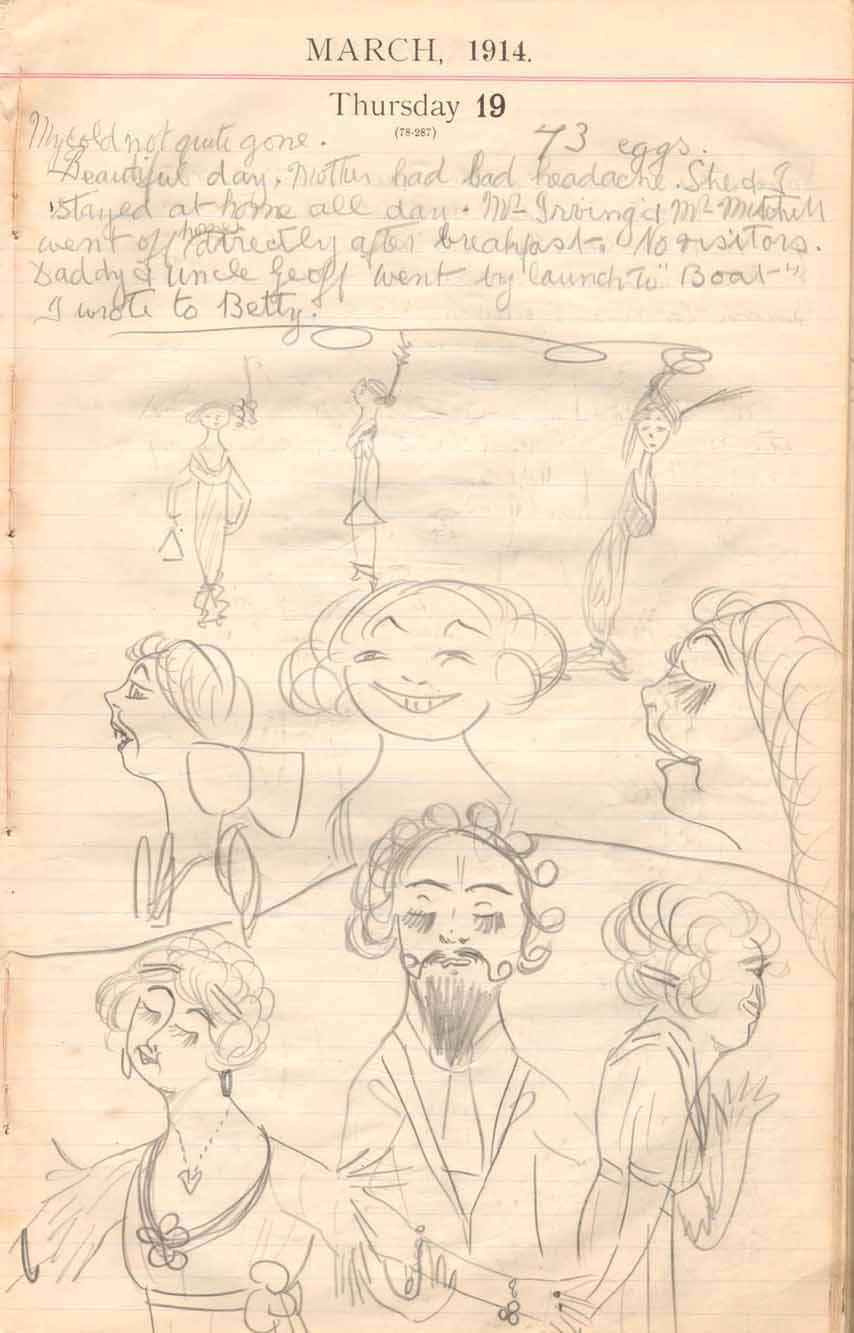 MARCH, 1914.
Thursday 19
(78-287)
My cold not quite gone. 73 eggs.
Beautiful day. Mother had bad headache. She & I
stayed at home all day. Mr Irving & Mr Mitchell
went off home directly after breakfast. No visitors.
Daddy & Uncle Geoff went by launch to "Boat"
I wrote to Betty.